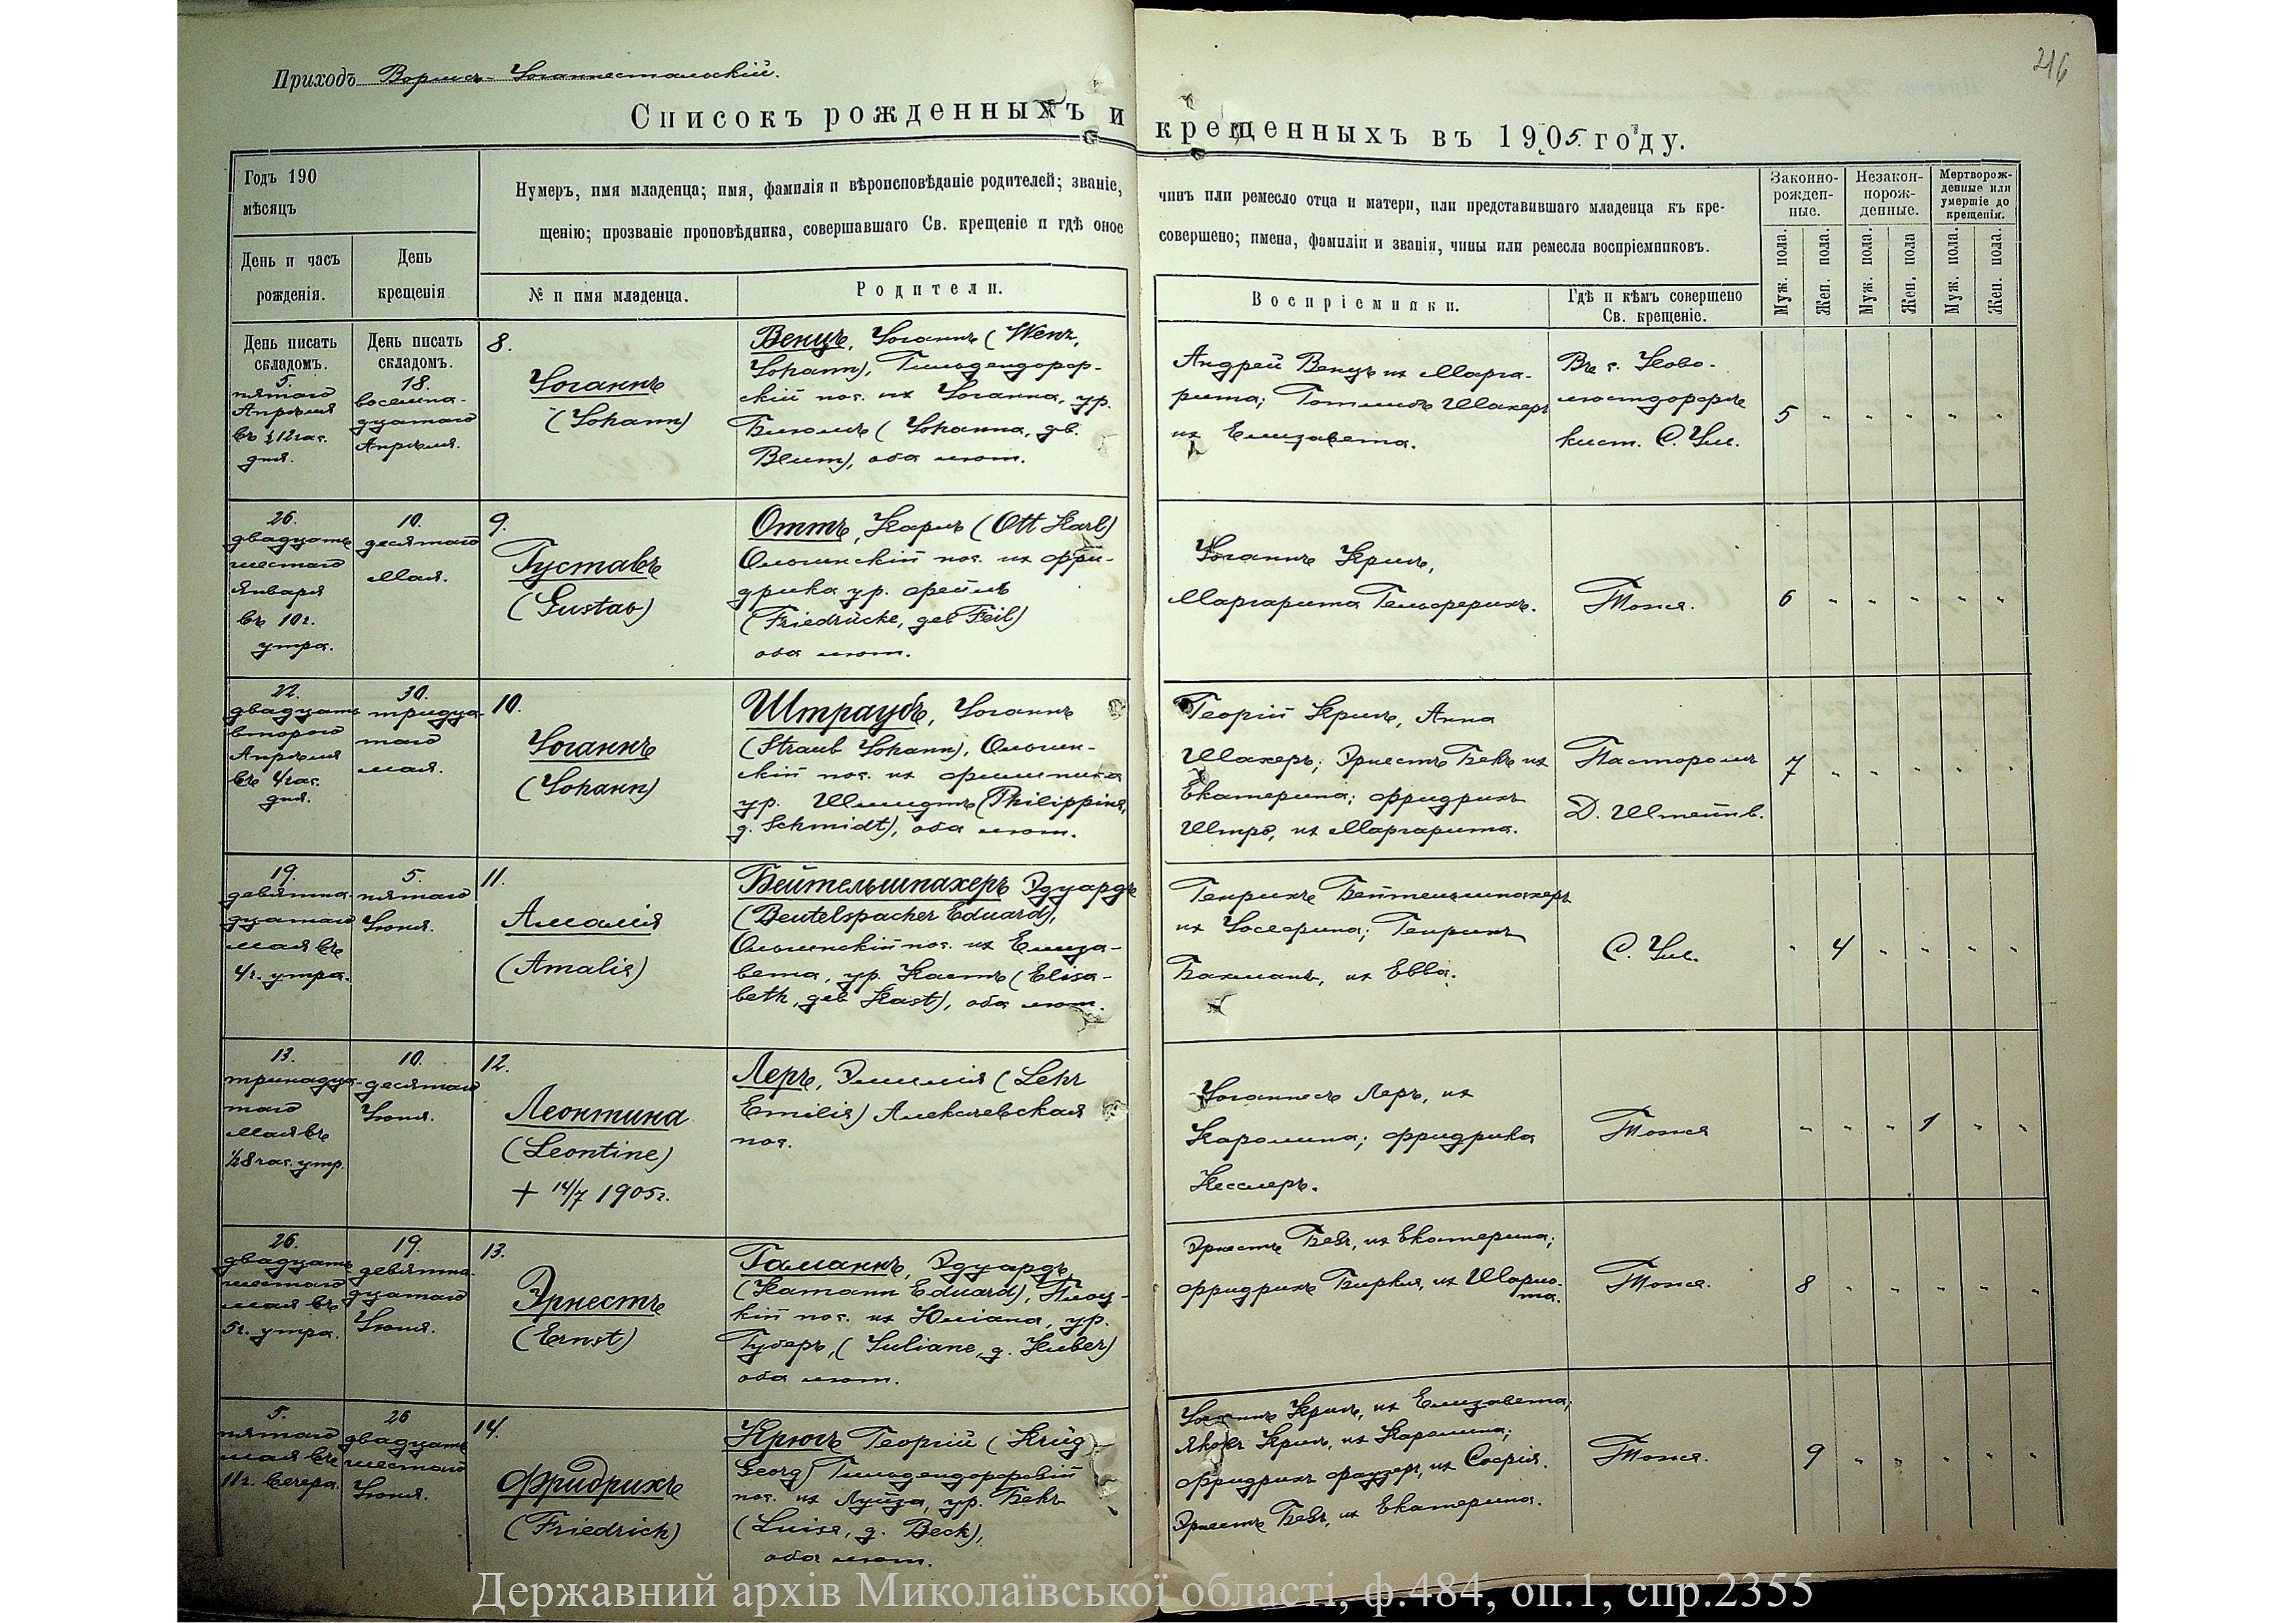 Приходъ Вормсъ-Іоганнестальскій.
216
Списокъ рожденныхъ и крещенныхъ въ 1905 году.
Годъ 190
мѣсяцъ
День и часъ
рожденія.
День
крещенія
Нумеръ, имя младенца; имя, фамилія и вѣроисповѣданіе родителей; званіе, чинъ или ремесло отца и матери, или представившаго младенца къ кре-
щенію; прозваніе проповѣдника, совершавшаго Св. крещеніе и гдѣ оное совершено; имена, фамиліи и званія, чины или ремесла воспріемниковъ.
№ и имя младенца.
Родители.
Воспріемники.
Гдѣ и кѣмъ совершено
Св. крещеніе.
Законно-
рожден-
ные.
Незакон-
норож-
денные.
Мертворож-
денные или
умершіе до
крещенія.
Муж. пола.
Жен. пола.
Муж. пола.
Жен. пола
Муж. пола.
Жен. пола.
День писать
складомъ.
5.
пятаго
Апрѣля
въ ½12 час.
дня.
День писать
складомъ.
18.
восемна-
дцатаго
Апрѣля.
8.
Іоганнъ
(Johann)
Венцъ, Іоганнъ (Wenz,
Johann), Гильдендорф-
скій пос. их Іоганна, ур.
(Johanna, gb.
оба лют.
Андрей Венцъ их Марга-
рита; Готлибъ Шахеръ
их Елизавета.
Въ с. Ново-
люстдорфъ
кист. С. Ул.
5 - - - - -
26.
двадцать
шестаго
Января
въ 10 ч.
утра.
10.
десятаго
Мая.
9.
Густавъ
(Gustav)
Оттъ, Карлъ (Ott Karl)
Ольгинскій пос. их Фри-
дрика ур. Фейлъ
(Friedrücke, geb Feil)
оба лют.
Іоганнъ Крилъ,
Маргарита Гельферихъ.
Тожея.
6 - - - - -
22.
двадцать
второго
Апрѣля
въ 4 час.
дня.
30.
тридца-
таго
мая.
10.
Іоганнъ
(Johann)
Штраубъ, Іоганнъ
(Straub Johann), Ольгин-
скій пос. их Филипина
ур. Шмидтъ (Philippine,
g. Schmidt), оба лют.
Георгій Крилъ, Анна
Шахеръ; Эрнестъ Бекъ их
Екатерина; Фридрихъ
Штро, их Маргарита.
Пасторомъ
Д. Штейнв.
7 - - - - -
19.
девятна-
дцатаго
мая въ
4 ч. утра.
5.
пятаго
Іюня.
11.
Амалія
(Amalie)
Бейтельшпахеръ Эдуардъ
(Beutelspacher Eduard),
Ольгинскій пос. их Елиза-
вета, ур. Кастъ (Elisa-
beth, geb Kast), оба лют.
Генрихъ Бейтельшпахеръ
их Іосефина; Генрихъ
Бахманъ, их Евва.
С. Ул.
- 4 - - - -
13.
тринадца-
таго
Мая въ
½8 час. утр.
10.
десятаго
Іюня.
12.
Леонтина
(Leontine)
+ 14/7 1905 г.
Леръ, Эмилія (Lehr
Emilie) Алексѣевская
пос.
Іоганнесъ Леръ, их
Каролина; Фридрика
Кесслеръ.
Тожея
- - - 1 - -
26.
двадцать
шестаго
мая въ
5 ч. утра.
19.
девятна-
дцатаго
Іюня.
13.
Эрнестъ
(Ernst)
Гаманнъ, Эдуардъ
(Hamann Eduard), Плоц-
кій пос. их Юліана, ур.
Губеръ, (Juliane, g. Huber)
оба лют.
Эрнестъ Бекъ, их Екатерина;
Фридрихъ их Шарло-
та.
Тожея.
8 - - - - -
5.
пятаго
мая въ
11 ч. вечера.
26
двадцать
шестаго
Іюня.
14.
Фридрихъ
(Friedrich)
Крюгъ Георгій (Krüg
Georg) Гильдендорфскій
пос. их Луиза, ур. Бекъ
(Luise, g. Beck),
оба лют.
Іоганнъ Крилъ, их Елизавета;
Яковъ Крилъ, их Каролина;
Фридрихъ Фаузеръ, их Софія.
Эрнестъ Бекъ, их Екатерина.
Тожея.
9 - - - - -
Державний архів Миколаївської області, ф.484, оп.1, спр.2355